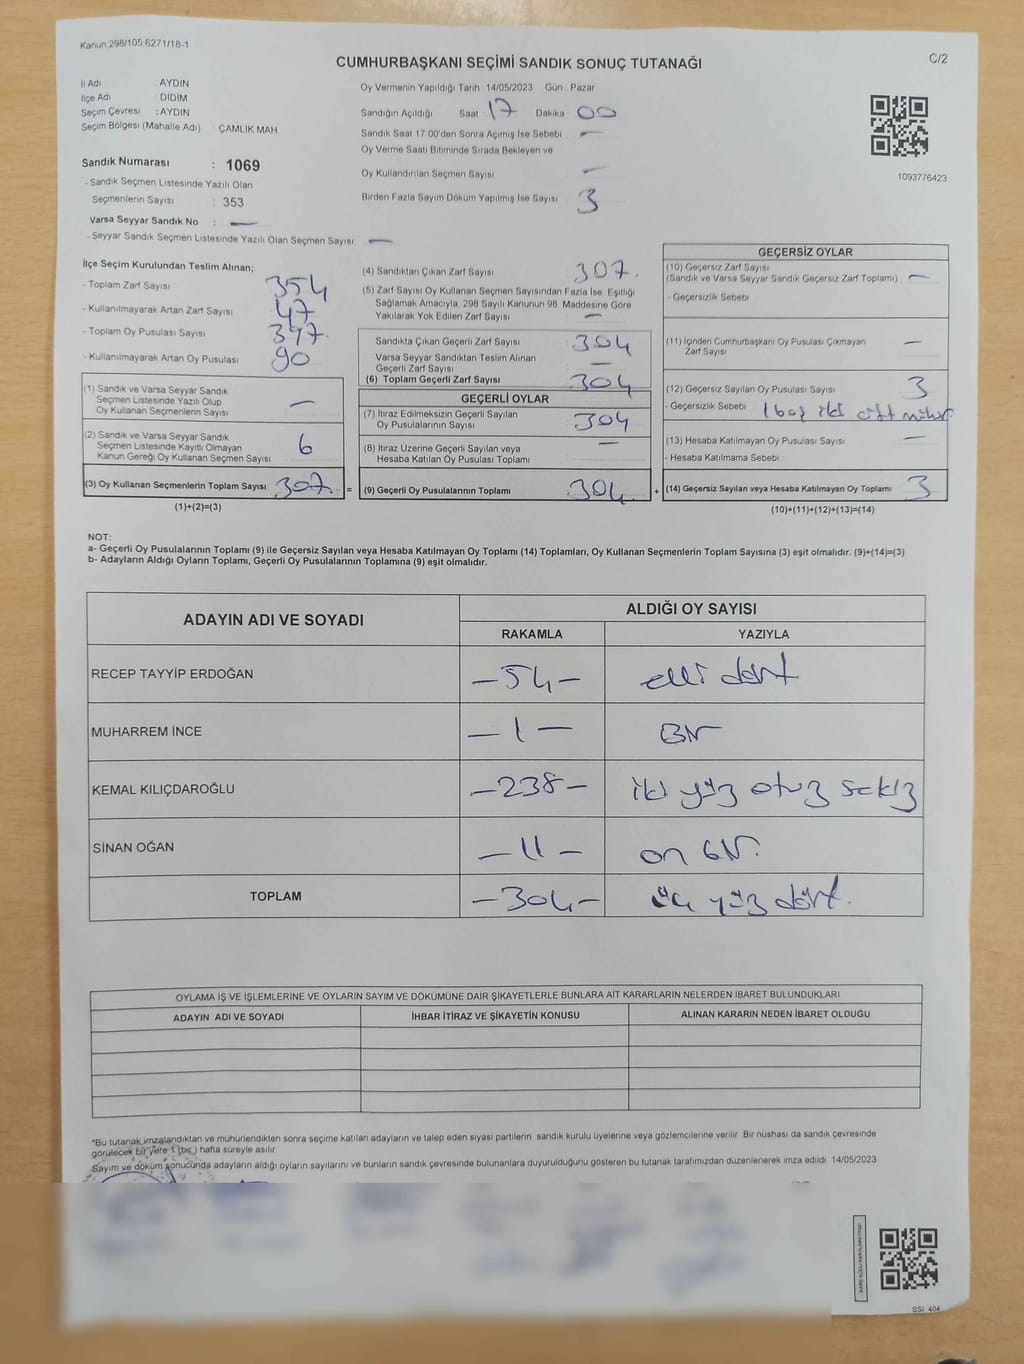 Kanun.298/105,6271/18-1
C/2
CUMHURBAŞKANI SEÇİMİ SANDIK SONUÇ TUTANAĞI
İl Adı : AYDIN
İlçe Adı : DİDİM
Seçim Çevresi : AYDIN
Seçim Bölgesi (Mahalle Adı) : ÇAMLIK MAH
Sandık Numarası : 1069
- Sandık Seçmen Listesinde Yazılı Olan
Seçmenlerin Sayısı : 353
Varsa Seyyar Sandık No : —
- Seyyar Sandık Seçmen Listesinde Yazılı Olan Seçmen Sayısı : —
Oy Vermenin Yapıldığı Tarih : 14/05/2023 Gün : Pazar
Sandığın Açıldığı Saat : 17 Dakika : 00
Sandık Saat 17:00'den Sonra Açımış İse Sebebi : —
Oy Verme Saati Bitiminde Sırada Bekleyen ve
Oy Kullandırılan Seçmen Sayısı : —
Birden Fazla Sayım Döküm Yapılmış İse Sayısı : 3
1093776423
İlçe Seçim Kurulundan Teslim Alınan;
- Toplam Zarf Sayısı : 354
- Kullanılmayarak Artan Zarf Sayısı : 47
- Toplam Oy Pusulası Sayısı : 397.
- Kullanılmayarak Artan Oy Pusulası : 90
(1) Sandık ve Varsa Seyyar Sandık
Seçmen Listesinde Yazılı Olup
Oy Kullanan Seçmenlerin Sayısı : —
(2) Sandık ve Varsa Seyyar Sandık
Seçmen Listesinde Kayıtlı Olmayan
Kanun Gereği Oy Kullanan Seçmen Sayısı : 6
(3) Oy Kullanan Seçmenlerin Toplam Sayısı : 307. =
(1)+(2)=(3)
(4) Sandıktan Çıkan Zarf Sayısı : 307.
(5) Zarf Sayısı Oy Kullanan Seçmen Sayısından Fazla İse, Eşitliği
Sağlamak Amacıyla, 298 Sayılı Kanunun 98. Maddesine Göre
Yakılarak Yok Edilen Zarf Sayısı : —
Sandıkta Çıkan Geçerli Zarf Sayısı : 304
Varsa Seyyar Sandıktan Teslim Alınan
Geçerli Zarf Sayısı : —
(6) Toplam Geçerli Zarf Sayısı : 304
GEÇERLİ OYLAR
(7) İtiraz Edilmeksizin Geçerli Sayılan
Oy Pusulalarının Sayısı : 304
(8) İtiraz Üzerine Geçerli Sayılan veya
Hesaba Katılan Oy Pusulası Toplamı : —
(9) Geçerli Oy Pusulalarının Toplamı : 304 +
GEÇERSİZ OYLAR
(10) Geçersiz Zarf Sayısı
(Sandık ve Varsa Seyyar Sandık Geçersiz Zarf Toplamı) : —
- Geçersizlik Sebebi :
(11) İçinden Cumhurbaşkanı Oy Pusulası Çıkmayan
Zarf Sayısı : —
(12) Geçersiz Sayılan Oy Pusulası Sayısı : 3
- Geçersizlik Sebebi : 1 boş iki çift mühür
(13) Hesaba Katılmayan Oy Pusulası Sayısı : —
- Hesaba Katılmama Sebebi :
(14) Geçersiz Sayılan veya Hesaba Katılmayan Oy Toplamı : 3
(10)+(11)+(12)+(13)=(14)
NOT:
a- Geçerli Oy Pusulalarının Toplamı (9) ile Geçersiz Sayılan veya Hesaba Katılmayan Oy Toplamı (14) Toplamları, Oy Kullanan Seçmenlerin Toplam Sayısına (3) eşit olmalıdır. (9)+(14)=(3)
b- Adayların Aldığı Oyların Toplamı, Geçerli Oy Pusulalarının Toplamına (9) eşit olmalıdır.
ADAYIN ADI VE SOYADI ALDIĞI OY SAYISI
RAKAMLA YAZIYLA
RECEP TAYYİP ERDOĞAN —54— elli dört
MUHARREM İNCE —1— Bir
KEMAL KILIÇDAROĞLU —238— iki yüz otuz sekiz
SİNAN OĞAN —11— on bir.
TOPLAM —304— üç yüz dört.
OYLAMA İŞ VE İŞLEMLERİNE VE OYLARIN SAYIM VE DÖKÜMÜNE DAİR ŞİKAYETLERLE BUNLARA AİT KARARLARIN NELERDEN İBARET BULUNDUKLARI
ADAYIN ADI VE SOYADI İHBAR İTİRAZ VE ŞİKAYETİN KONUSU ALINAN KARARIN NEDEN İBARET OLDUĞU
*Bu tutanak imzalandıktan ve mühürlendikten sonra seçime katılan adayların ve talep eden siyasi partilerin sandık kurulu üyelerine veya gözlemcilerine verilir. Bir nüshası da sandık çevresinde
görülecek bir yere 1 (bir) hafta süreyle asılır.
Sayım ve döküm sonucunda adayların aldığı oyların sayılarını ve bunların sandık çevresinde bulunanlara duyurulduğunu gösteren bu tutanak tarafımızdan düzenlenerek imza edildi. 14/05/2023
SSİ 404